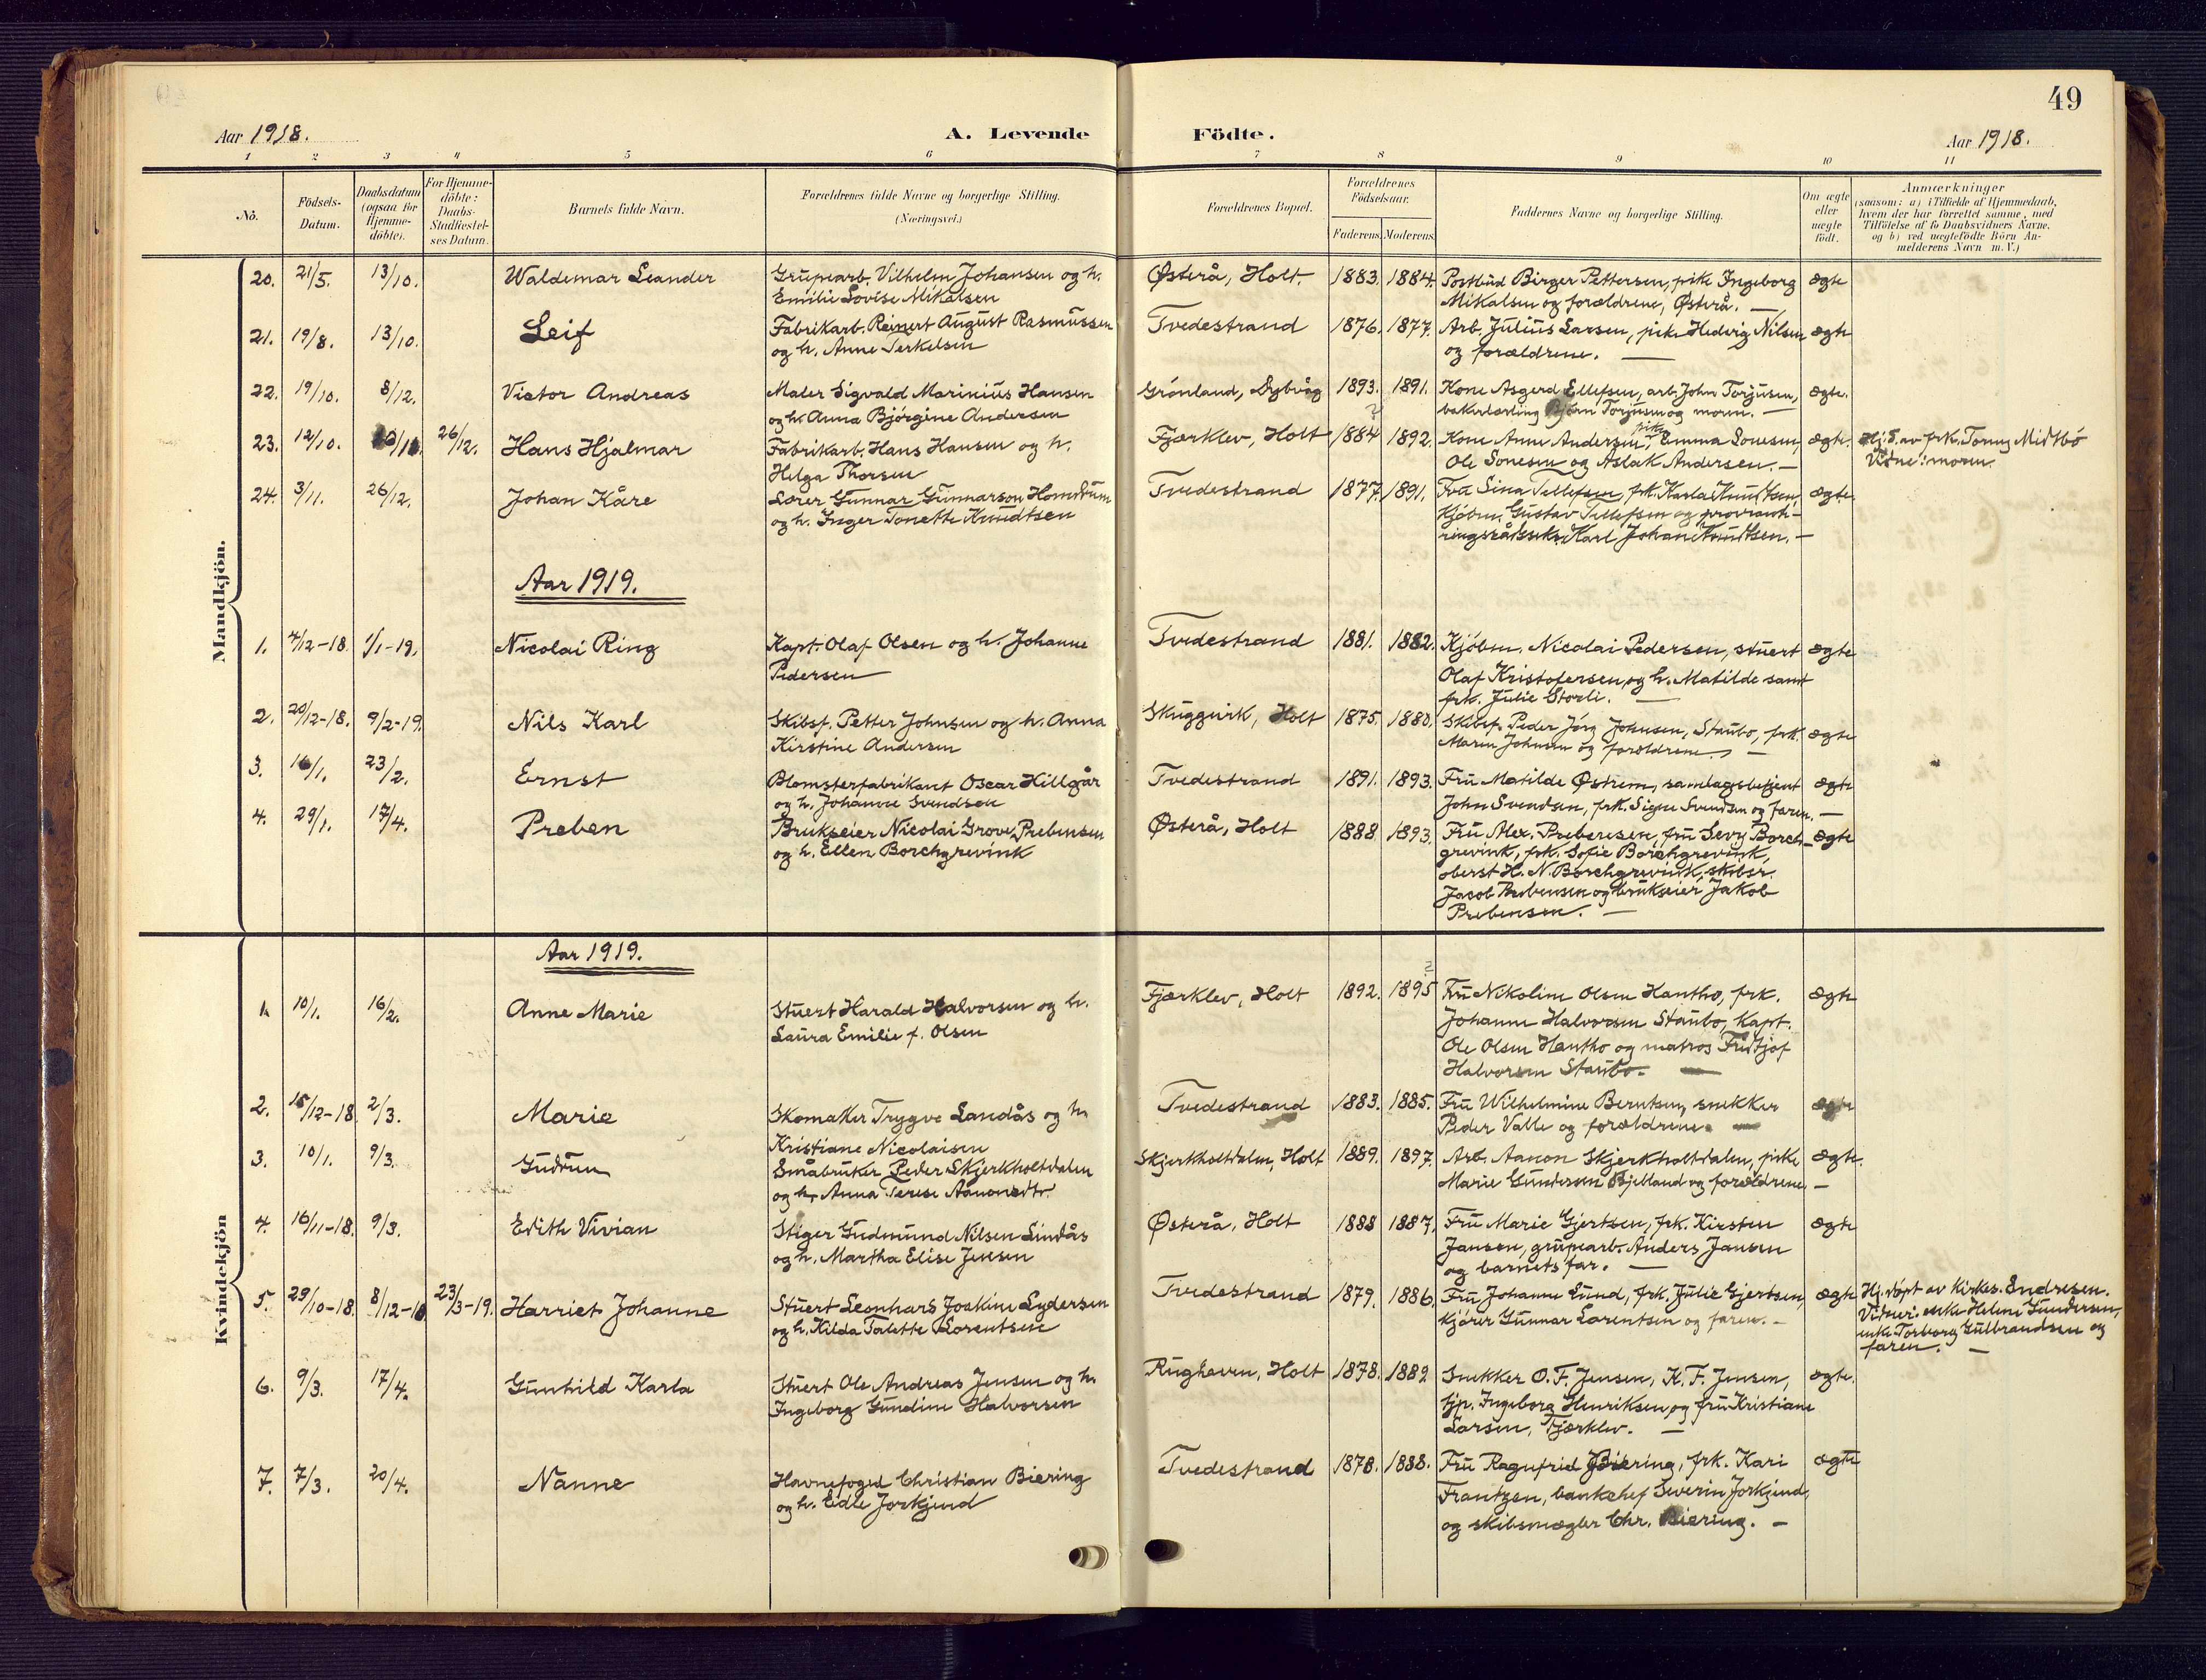 49
Aar 1918.
A. Levende Födte.
Aar 1918.
1 2 3 4 5 6 7 8 9 10 11
Nò.
Födsels-Datum.
Daabsdatum (ogsaa for Hjemme-döbte).
For Hjemme-döbte: Daabs-Stadfæstel-ses Datum.
Barnets fulde Navn.
Forældrenes fulde Navne og borgerlige Stilling. (Næringsvei.)
Forældrenes Bopæl.
Forældrenes Födselsaar.
Faderens. Moderens.
Faddernes Navne og borgerlige Stilling.
Om ægte eller uægte födt.
Anmærkninger
(saasom: a) i Tilfælde af Hjemmedaab,
hvem der har forrettet samme, med
Tilföielse af to Daabsvidners Navne.
og b) ved uægtefödte Börn An-
melderens Navn m. V.)
Mandkjön.
20. 21/5. 13/10. Waldemar Leander
Grubearb. Vilhelm Johansen og h.
Emilie Lovise Mikalsen
Østerå, Holt. 1883. 1884.
Postbud Birger Pettersen, pike Ingeborg
Mikalsen og forældrene, Østerå. —
ægte
21. 19/8. 13/10. Leif
Fabrikarb. Reinert August Rasmussen
og h. Anne Terkelsen
Tvedestrand 1876. 1877.
Arb. Julius Larsen, pike Hedvig Nilsen
og forældrene. —
ægte
22. 19/10. 8/12. Victor Andreas
Maler Sigvald Marinius Hansen
og h. Anna Bjørgine Andersen
Grønland, Dybvåg 1893. 1891.
Kone Asgerd Ellefsen, arb. John Torjusen,
bakerlærling Bjørn Torjusen og moren. —
ægte.
23. 12/10. 26/12. Hans Hjalmar
Fabrikarb. Hans Hansen og h.
Helga Thorsen
Fjærklev, Holt 1884 ? 1892.
Kone Anne Andersen, pike Emma Sonesen,
Ole Sonesen og Aslak Andersen. —
ægte.
Hj.d. av frk. Tonny Midtbø
Vidne: moren.
24. 3/11. 26/12. Johan Kåre
Lærer Gunnar Gunnarson Homdrum
og h. Inger Tonette Knudtsen
Tvedestrand 1877. 1891.
Fru Sina Tellefsen, frk. Karla Knudtsen,
Kjøbm. Gustav Tellefsen og provianti-
ringsrådssekr. Karl Johan Knudtsen. —
ægte.
Aar 1919.
1. 4/12-18. 1/1-19. Nicolai Ring
Kapt. Olaf Olsen og h. Johanne
Pedersen
Tvedestrand 1881. 1882.
Kjøbm. Nicolai Pedersen, stuert
Olaf Kristofersen og h. Matilde samt
frk. Julie Storli. —
ægte
2. 20/12-18. 9/2-19. Nils Karl
Skibsf. Petter Johnsen og h. Anna
Kirstine Andersen
Skuggvik, Holt 1875. 1880.
Skibsf. Peder Jørg Johnsen, Staubo, frk.
Maren Johnsen og forældrene. —
ægte
3. 16/1. 23/2. Ernst
Blomsterfabrikant Oscar Hillgår
og h. Johanne Svendsen
Tvedestrand 1891. 1893.
Fru Matilde Østrem, samlagsbetjent
John Svendsen, frk. Signe Svendsen og faren. —
ægte
4. 29/1. 17/4. Preben
Brukseier Nicolai Grove Prebensen
og h. Ellen Borchgrevink
Østerå, Holt 1888 1893.
Fru Alex. Prebensen, fru Levy Borch-
grevink, frk. Sofie Borchgrevink,
oberst H. N. Borchgrevink, skibsr.
Jacob Prebensen og brukseier Jakob
Prebensen. —
ægte
Kvindekjön
Aar 1919.
1. 10/1. 16/2. Anne Marie
Stuert Harald Halvorsen og h.
Laura Emilie f. Olsen
Fjærklev, Holt 1892. 1895 ?
Fru Nikoline Olsen Hantho, frk.
Johanne Halvorsen Staubo, Kapt.
Ole Olsen Hantho og matros Fridtjof
Halvorsen Staubo. —
ægte
2. 15/12-18 2/3. Marie
Skomaker Trygve Landås og h.
Kristiane Nicolaisen
Tvedestrand 1883. 1885.
Fru Wilhelmine Berntsen, snekker
Peder Valle og forældrene. —
ægte
3. 10/1. 9/3. Gudrun
Småbruker Peder Skjerkholtdalen
og h. Anna Terese Aanonsdtr.
Skjerkholtdalen, Holt 1889. 1897.
Arb. Aanon Skjerkholtdalen, pike
Marie Gundersen Bjelland og forældrene. —
ægte.
4. 16/11-18. 9/3. Edith Vivian
Stiger Gudmund Nilsen Lindås
og h. Martha Elise Jensen
Østerå, Holt 1888 1887.
Fru Marie Gjertsen, frk. Kirsten
Jansen, grubearb. Anders Jansen
og barnets far. —
ægte
5. 29/10-18. 8/12-18 23/3-19. Harriet Johanne
Stuert Leonhard Joakim Lydersen
og h. Hilda Talette Lorentsen
Tvedestrand 1879. 1886.
Fru Johanne Lund, frk. Julie Gjertsen,
kjører Gunnar Lorentsen og faren. —
ægte
Hj.døpt av Kirkes. Endresen.
Vidner: enke Helene Gundersen,
enke Torborg Gulbrandsen og
faren. —
6. 9/3. 17/4. Gunhild Karla
Stuert Ole Andreas Jensen og h.
Ingeborg Gundine Halvorsen
Rughaven, Holt 1878. 1882
Snekker O. F. Jensen, K. F. Jensen,
tjp. Ingeborg Henriksen og fru Kristiane
Larsen, Fjærklev. —
ægte.
7. 7/3. 20/4. Nanne
Havnefoged Christian Biering
og h. Edle Jorkjend
Tvedestrand 1878. 1888.
Fru Ragnfrid Biering, frk. Kari
Frantzen, bankchef Severin Jorkjend,
og skibsmægler Chr. Biering. —
ægte